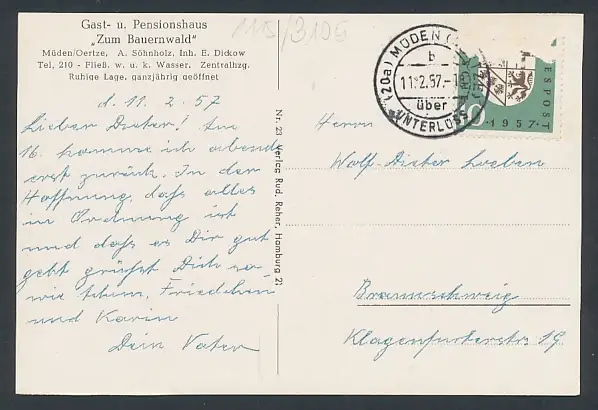 Gast- u. Pensionshaus
„Zum Bauernwald"
Müden/Oertze, A. Söhnholz, Inh. E. Dickow
Tel. 210 - Fließ. w. u. k. Wasser, Zentralhzg.
Ruhige Lage, ganzjährig geöffnet
115/310G
d. 11. 2. 57
Lieber Dieter! Am
16. komme ich abends
erst zurück. In der
Hoffnung, daß alles
in Ordnung ist
und daß es Dir gut
geht grüßt Dich so-
wie Friedchen
und Karin
Dein Vater
Nr. 23 Verlag Rud. Reher, Hamburg 21
(20a) MÜDEN
b
11.2.57.-1
über
UNTERLÜSS
ESPOST
1957
Herrn
Wolf-Dieter
Braunschweig
Klagenfurterstr. 19